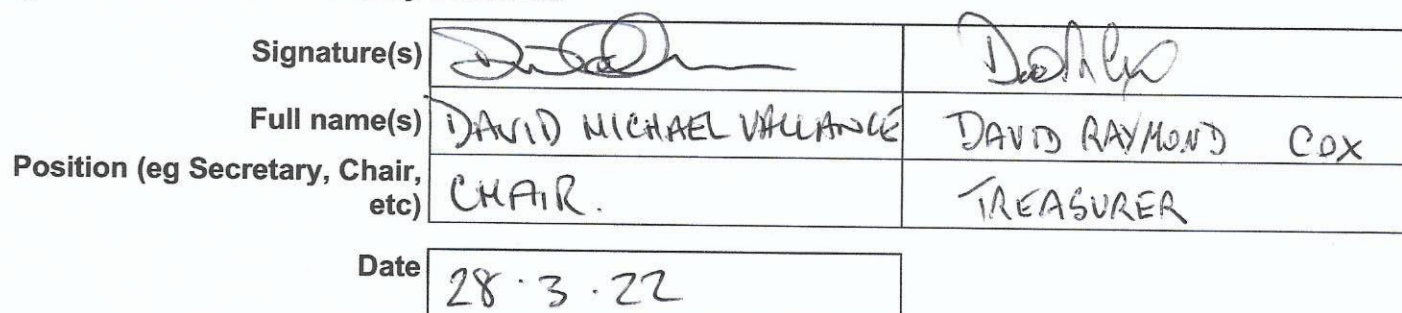 Signature(s)
Full name(s) DAVID MICHAEL VALLANCE DAVID RAYMOND COX
Position (eg Secretary, Chair,
etc) CHAIR. TREASURER
Date 28.3.22